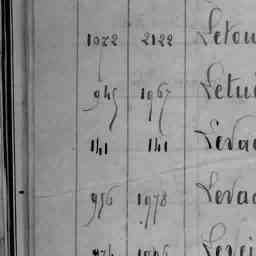 1072 2122 Letou
945 1967 Letui
141 141 Levac
956 1978 Levac